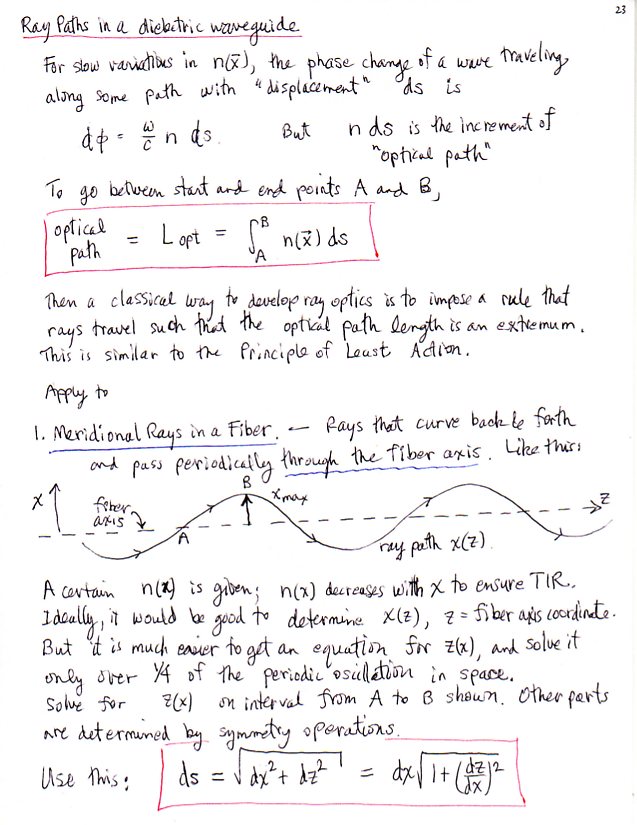 23
Ray Paths in a dielectric waveguide
For slow variations in n(x̄), the phase change of a wave traveling
along some path with "displacement" ds is
dϕ = ω/c n ds. But n ds is the increment of
"optical path"
To go between start and end points A and B,
optical path = L opt = ∫_A^B n(x̄) ds
Then a classical way to develop ray optics is to impose a rule that
rays travel such that the optical path length is an extremum.
This is similar to the Principle of Least Action.
Apply to
1. Meridional Rays in a Fiber. — Rays that curve back & forth
and pass periodically through the fiber axis. Like this:
X fiber axis A B xmax ray path x(z) z
A certain n(x) is given; n(x) decreases with x to ensure TIR.
Ideally, it would be good to determine x(z), z = fiber axis coordinate.
But it is much easier to get an equation for z(x), and solve it
only over 1/4 of the periodic oscillation in space.
Solve for z(x) on interval from A to B shown. Other parts
are determined by symmetry operations.
Use this: ds = √(dx² + dz²) = dx √(1 + (dz/dx)²)